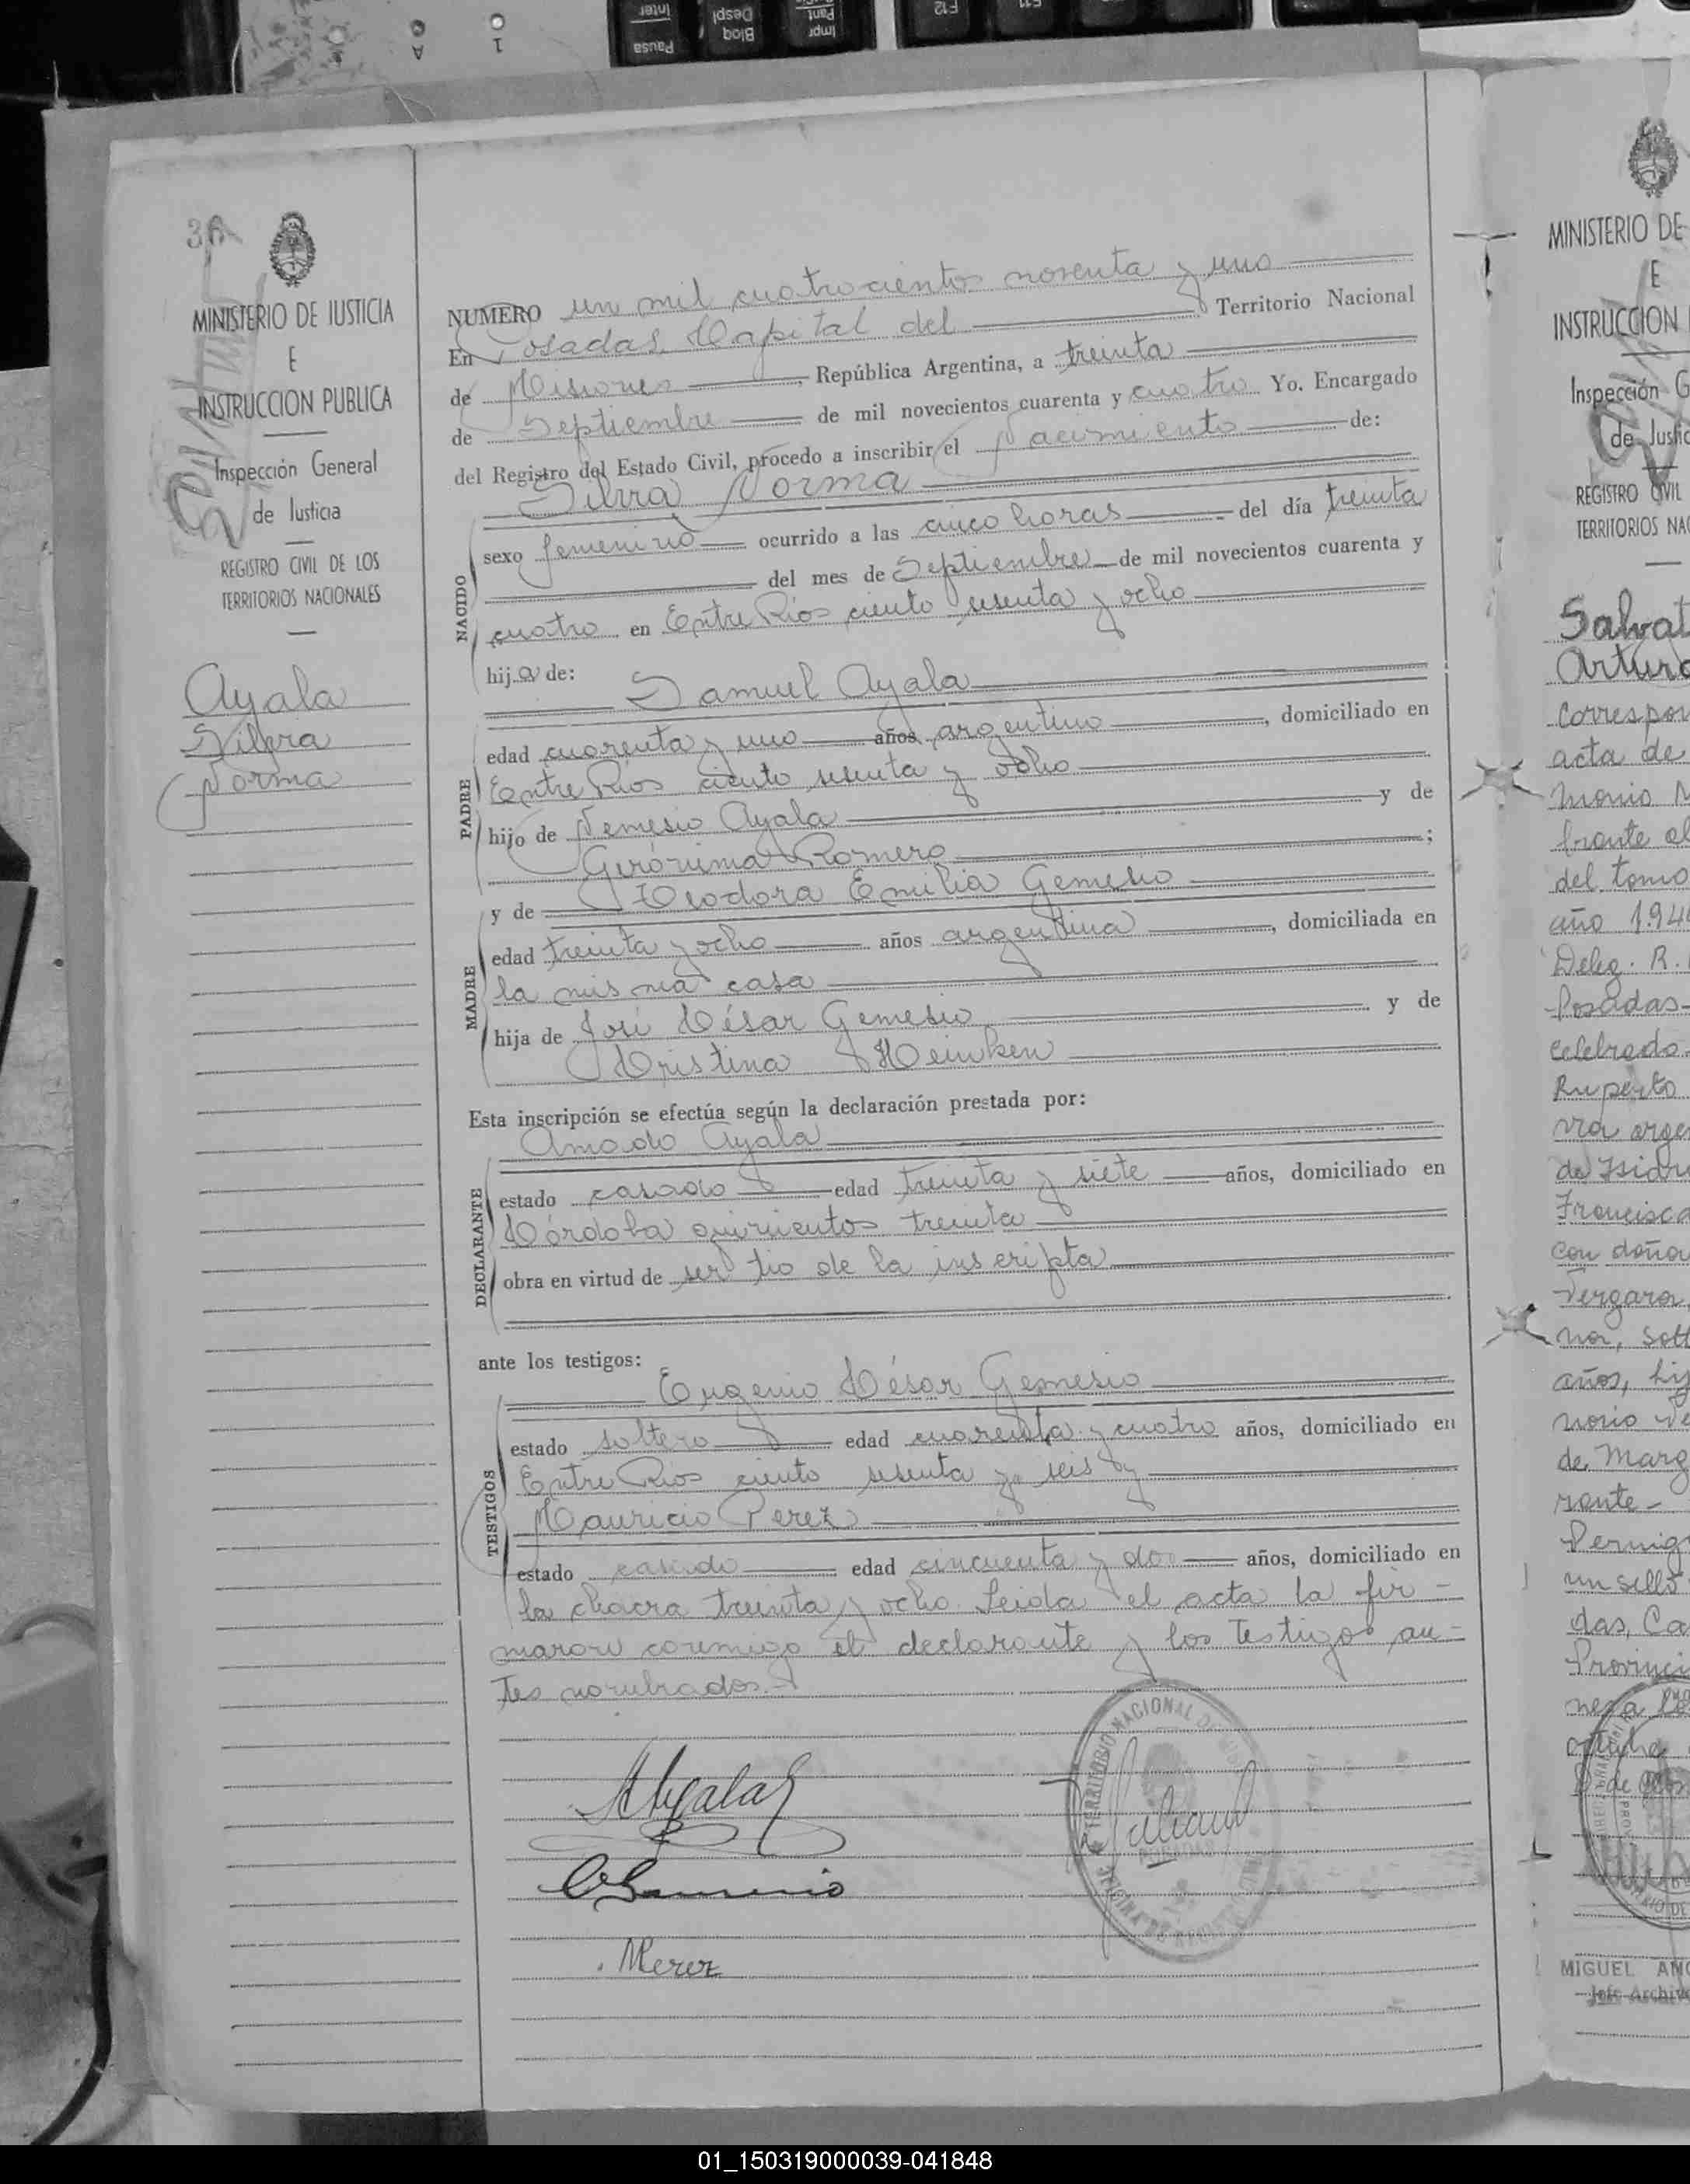 Inter
Pausa
Despl
Bloq
Pant
Impr
F12
A
1
36
MINISTERIO DE JUSTICIA
E
INSTRUCCION PUBLICA
Inspección General
de Justicia
REGISTRO CIVIL DE LOS
TERRITORIOS NACIONALES
Ayala
Silvra
Norma
NUMERO un mil cuatrocientos noventa y uno
En Posadas, Capital del Territorio Nacional
de Misiones, República Argentina, a treinta
de Septiembre de mil novecientos cuarenta y cuatro Yo. Encargado
del Registro del Estado Civil, procedo a inscribir el Nacimiento de:
Silvra Norma
NACIDO
sexo femenino ocurrido a las cinco horas del día treinta
del mes de Septiembre de mil novecientos cuarenta y
cuatro en Entre Rios ciento sesenta y ocho
hija de:
Samuel Ayala
PADRE
edad cuarenta y uno años argentino, domiciliado en
Entre Rios ciento sesenta y ocho
hijo de Nemesio Ayala y de
Gerónima Romero ;
y de Teodora Emilia Gemesio
MADRE
edad treinta y ocho años argentina, domiciliada en
la misma casa
hija de José César Gemesio y de
Cristina Heinken
Esta inscripción se efectúa según la declaración prestada por:
Amado Ayala
DECLARANTE
estado casado edad treinta y siete años, domiciliado en
Córdoba quinientos treinta
obra en virtud de ser tio de la inscripta
ante los testigos:
Eugenio César Gemesio
TESTIGOS
estado soltero edad cuarenta y cuatro años, domiciliado en
Entre Rios ciento sesenta y seis y
Mauricio Perez
estado casado edad cincuenta y dos años, domiciliado en
la chacra treinta y ocho. Leida el acta la fir-
maron conmigo el declarante y los testigos an-
tes nombrados.
AAyala
MPerez
TERRITORIO NACIONAL DE
MINISTERIO DE
E
INSTRUCCION
Inspección G
de Justic
REGISTRO CIVIL
TERRITORIOS NA
Salvat
Arturo
Correspon
acta de
monio N
frente al
del tomo
año 194
Deleg. R.
Posadas-
celebrado
Ruperto
vra argen
de Isidr
Francisca
con doña
Vergara,
na, solt
años, hij
norio Ve
de Marg
rante-
Permig
un sello
das, Ca
Provinci
MIGUEL ANG
Jefe Archivo
01_150319000039-041848